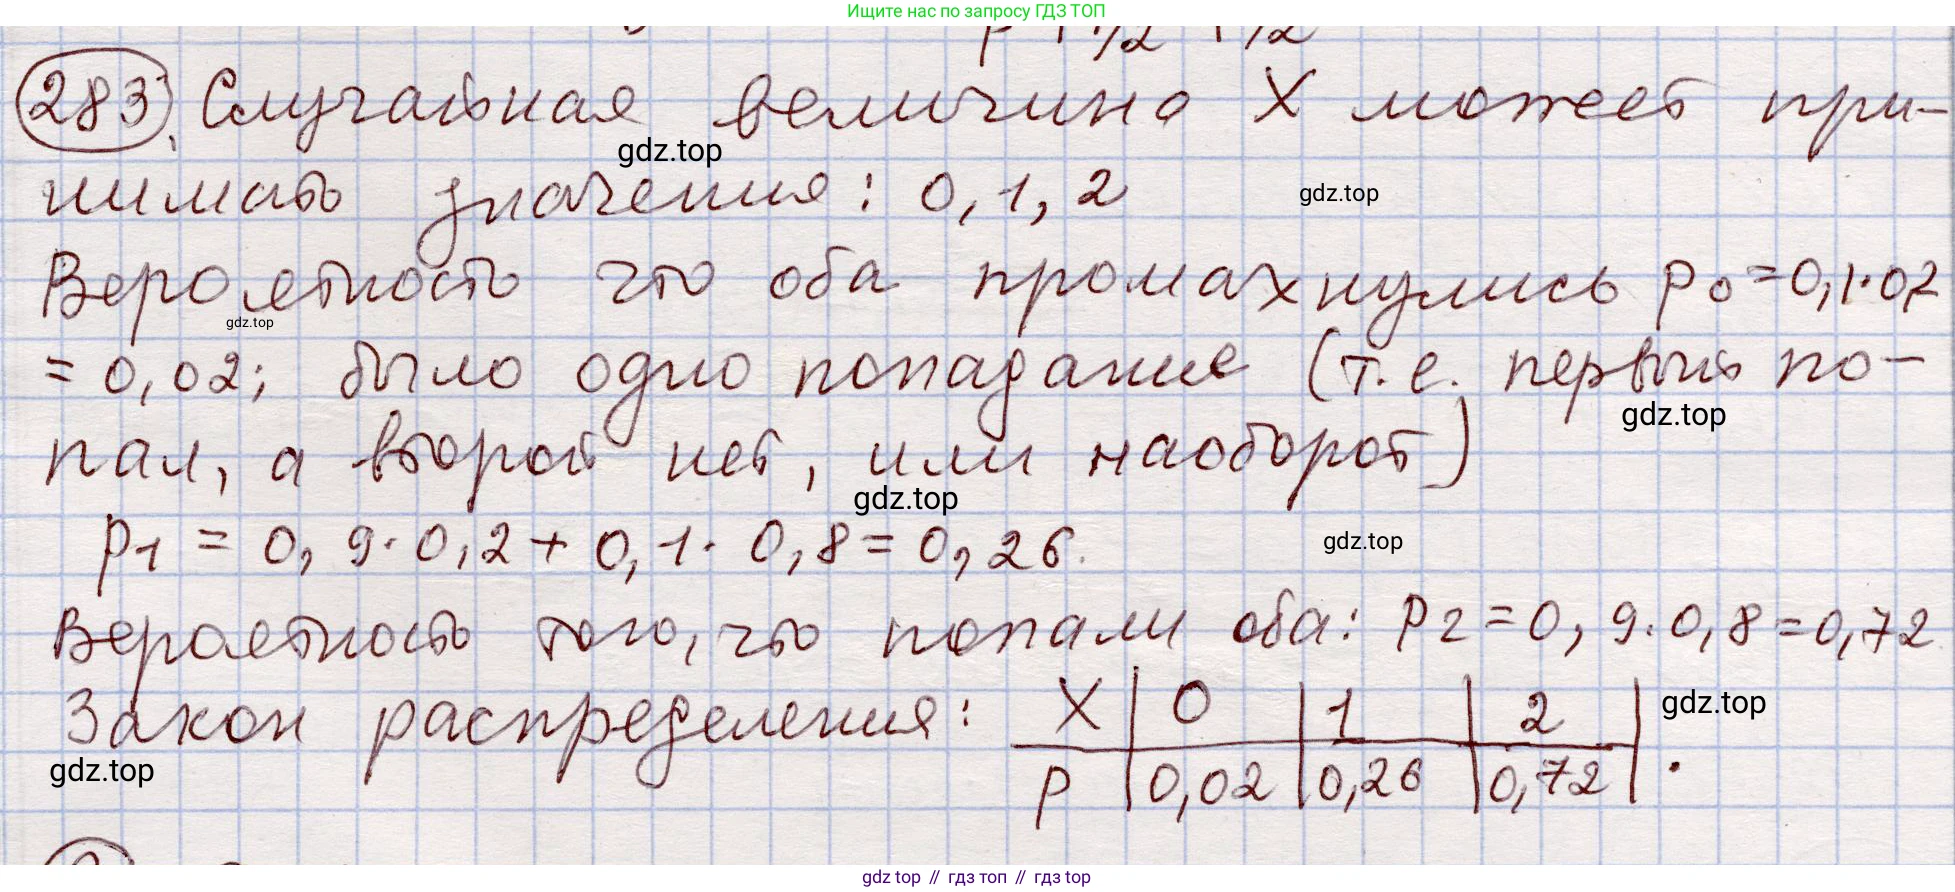 Ищите нас по запросу ГДЗ ТОП
283. Случайная величина X может при-
нимать значения: 0, 1, 2
gdz.top
gdz.top
Вероятность что оба промахнулись p₀=0,1·0,2
gdz.top
= 0,02; было одно попадание (т.е. первый по-
gdz.top
пал, а второй нет, или наоборот)
gdz.top
p₁ = 0,9·0,2+0,1·0,8=0,26.
gdz.top
Вероятность того, что попали оба: p₂=0,9·0,8=0,72
Закон распределения: X | 0 | 1 | 2 |
gdz.top
gdz.top
p | 0,02 | 0,26 | 0,72 | .
gdz top // гдз топ // гдз top